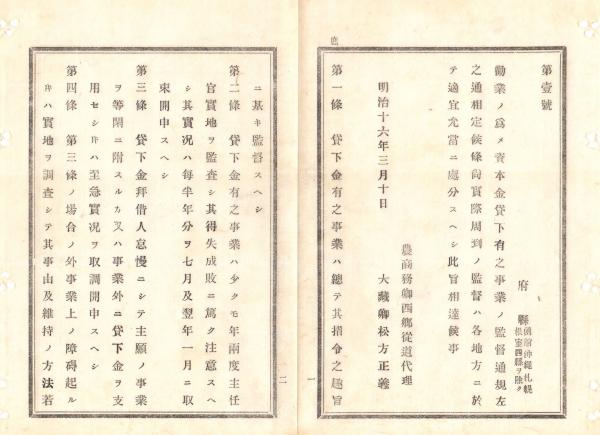 第壹號
府縣 函館沖繩札幌根室四縣ヲ除ク
勸業ノ爲メ資本金貸下有之事業ノ監督通規左
之通相定候條尙實際周到ノ監督ハ各地方ニ於
テ適宜允當ニ處分スヘシ此旨相達候事
明治十六年三月十日
農商務卿西鄕從道代理
大藏卿松方正義
第一條 貸下金有之事業ハ總テ其指令之趣旨
一
ニ基キ監督スヘシ
第二條 貸下金有之事業ハ少クモ年兩度主任
官實地ヲ監査シ其得失成敗ニ篤ク注意スヘ
シ其實况ハ每半年分ヲ七月及翌年一月ニ取
束開申スヘシ
第三條 貸下金拜借人怠慢ニシテ主願ノ事業
ヲ等閑ニ附スルカ又ハ事業外ニ貸下金ヲ支
用セシ時ハ至急實况ヲ取調開申スヘシ
第四條 第三條ノ場合ノ外事業上ノ障碍起ル
時ハ實地ヲ調査シテ其事由及維持ノ方法若
二